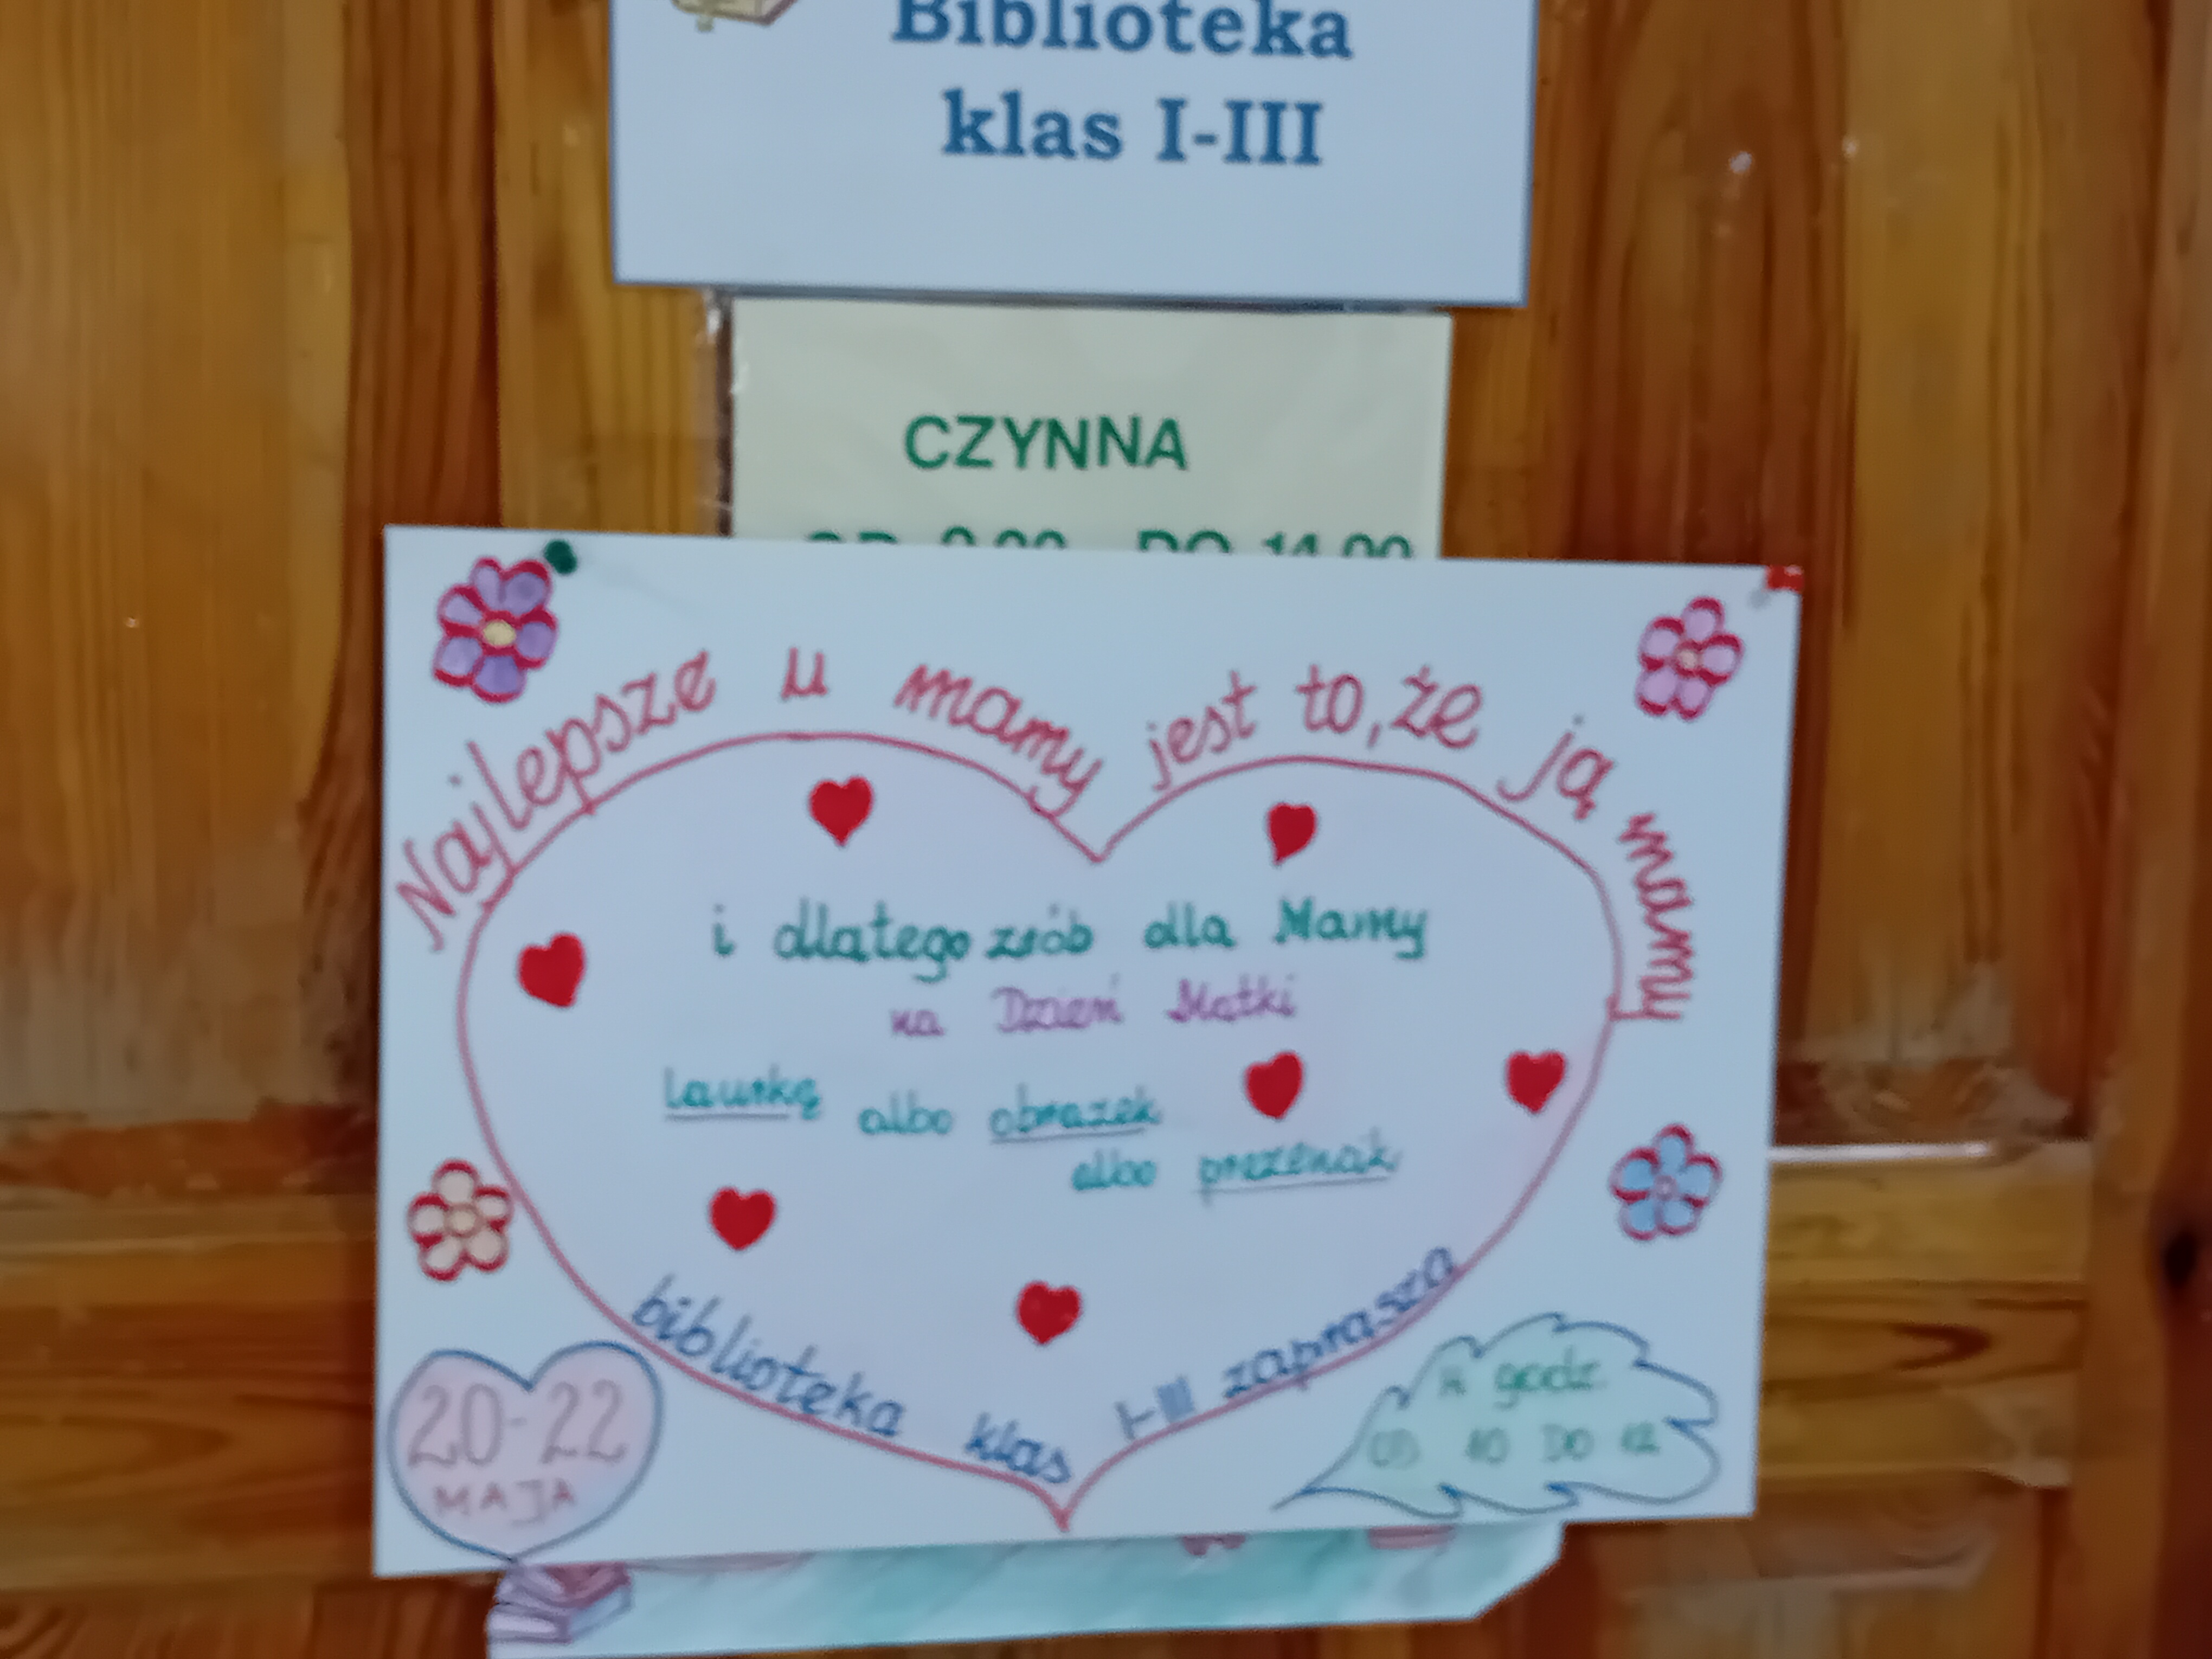 Biblioteka
klas I-III
CZYNNA
DO 14.00
Najlepsze u mamy jest to, że ją mamy
i dlatego zrób dla Mamy
na Dzień Matki
laurkę albo obrazek
albo prezencik
biblioteka klas I-III zaprasza
20-22
MAJA
godz.
OD 10 DO 12